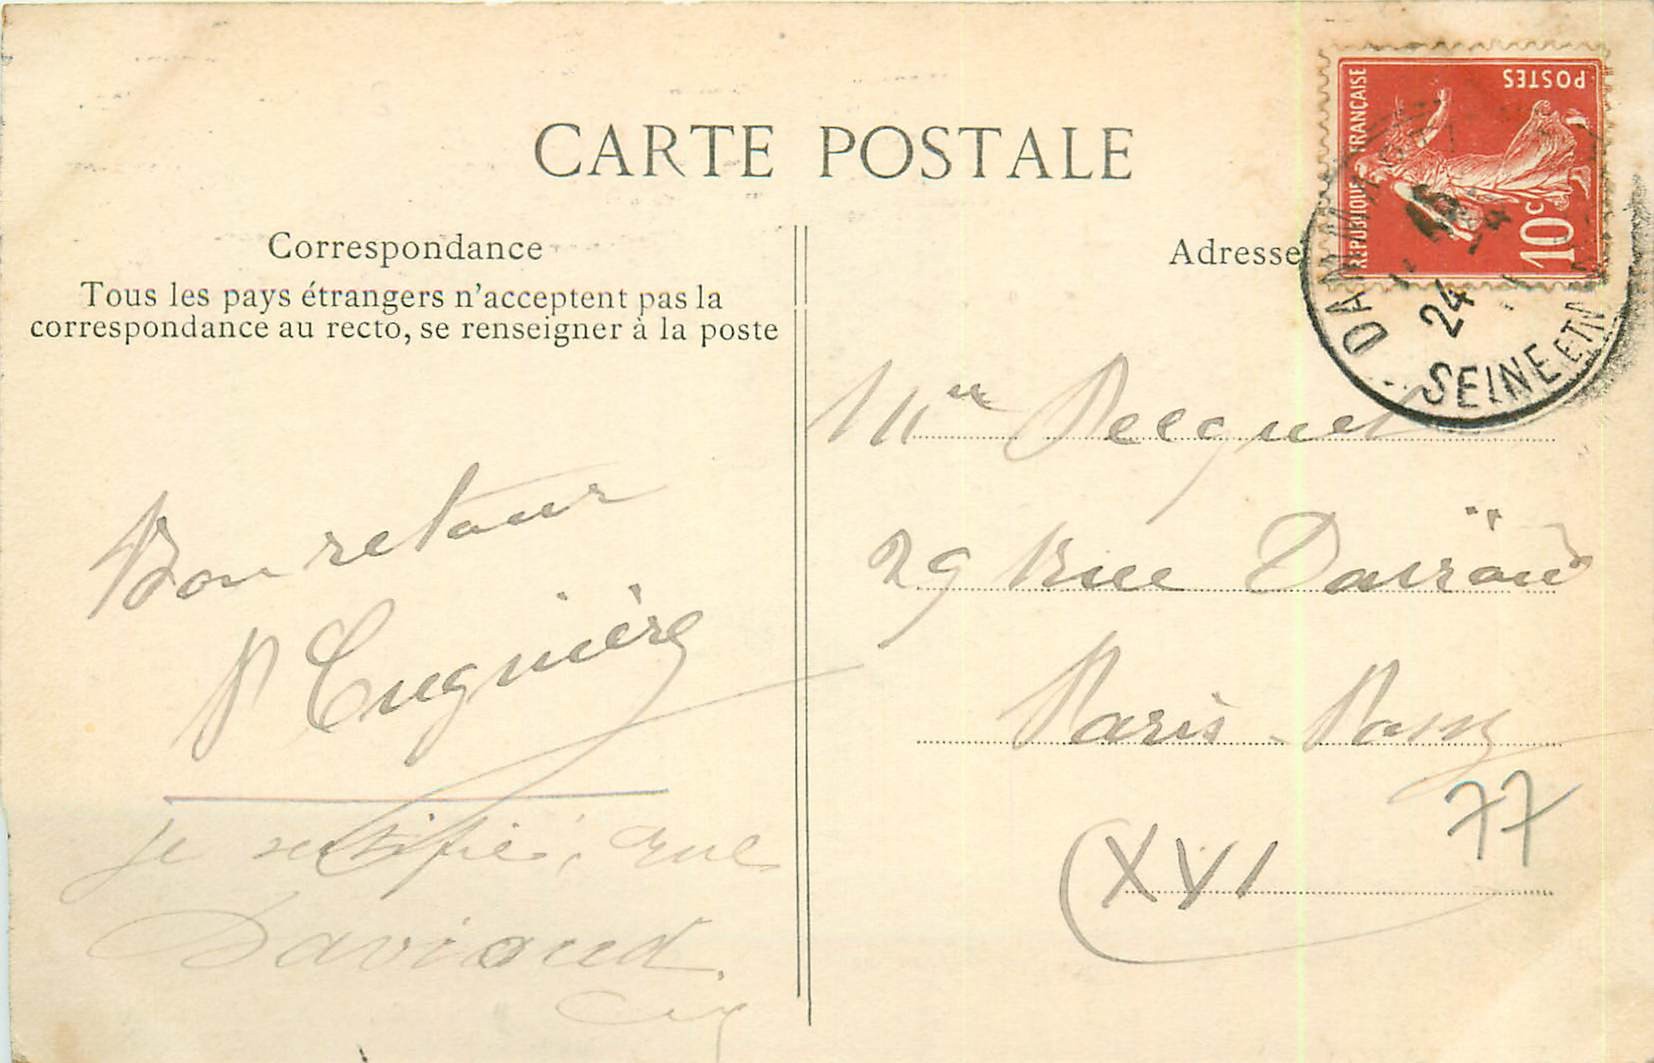 CARTE POSTALE
Correspondance
Tous les pays étrangers n'acceptent pas la
correspondance au recto, se renseigner à la poste
Bon retour
P Cugnière
je rectifie, rue
Davioud.
Adresse
POSTES
REPUBLIQUE FRANÇAISE
10c
24
SEINE ET M
Pecquet
29 Rue
Paris-Passy
(XVI
77